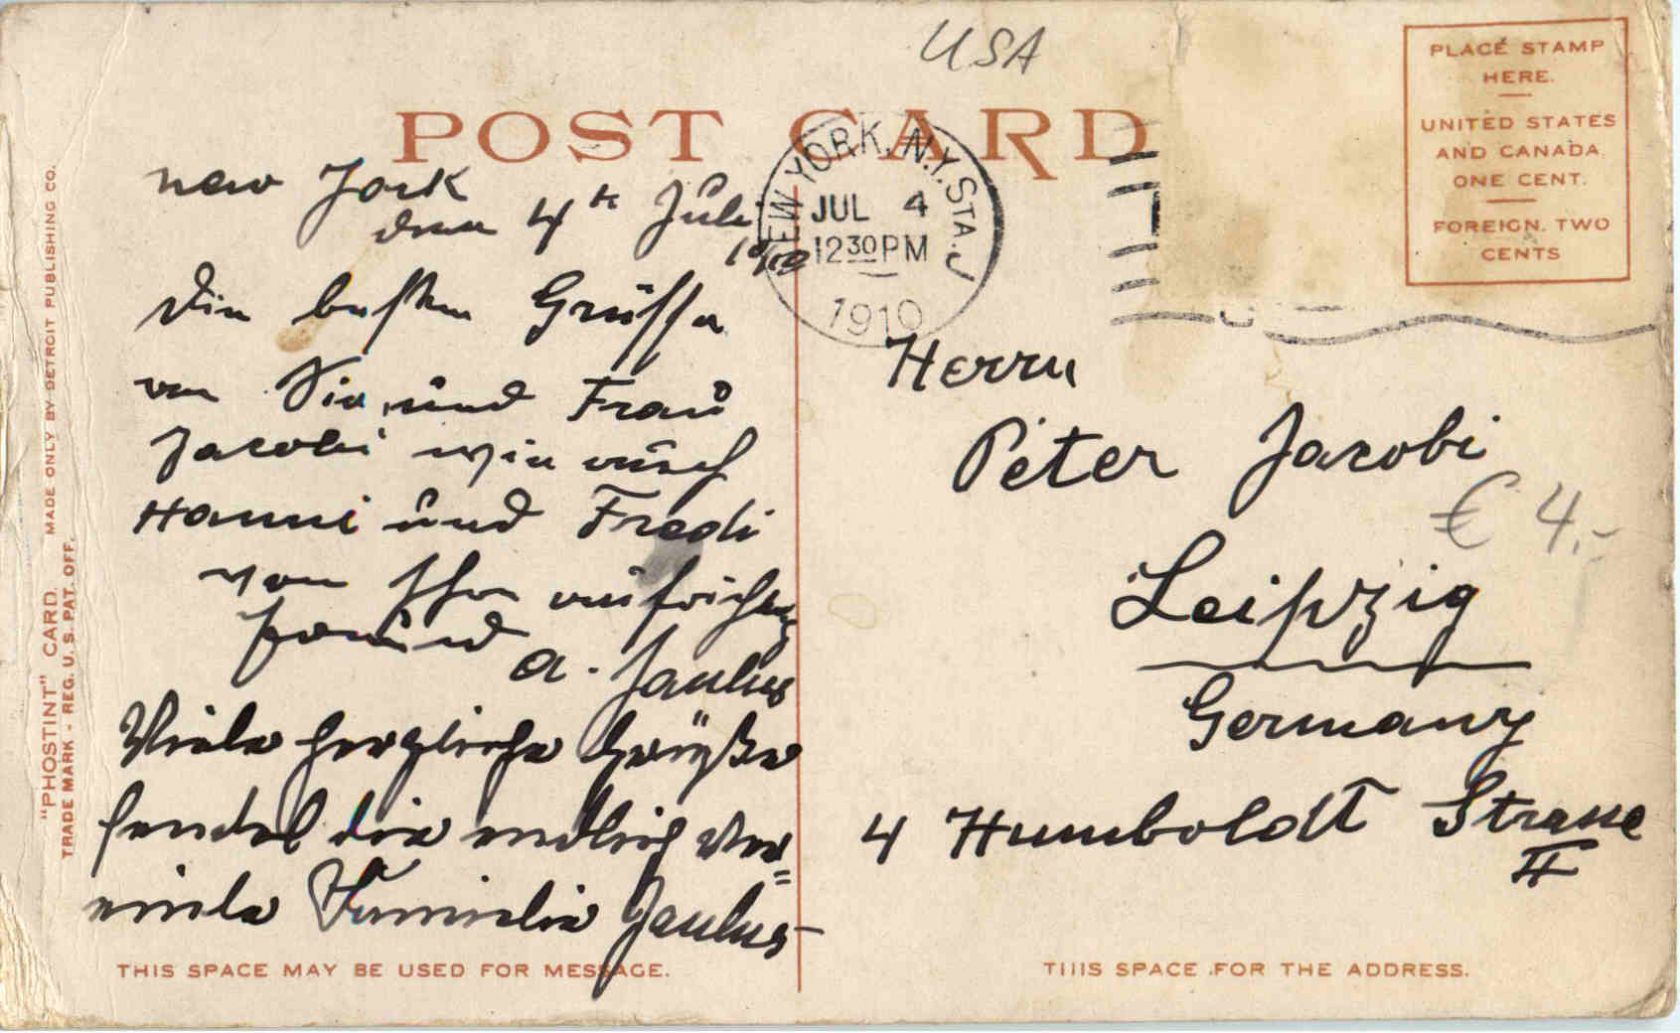 USA
POST CARD
PLACE STAMP
HERE.
UNITED STATES
AND CANADA
ONE CENT.
FOREIGN. TWO
CENTS
NEW YORK, N.Y. STA. J
JUL 4
1230 PM
1910
"PHOSTINT" CARD. MADE ONLY BY DETROIT PUBLISHING CO.
TRADE MARK - REG. U.S. PAT. OFF.
new York
den 4th Juli
1910
Die besten Grüsse
an Sie und Frau
Jacobi wie auch
Hanni und Fredi
von Ihr aufrichtig
Freund
A. Jaulus
Viele herzliche Grüße
sendet die endlich ver=
einte Familie Jaulus
THIS SPACE MAY BE USED FOR MESSAGE.
Herrn
Peter Jacobi
€ 4,-
Leipzig
Germany
4 Humboldt Strasse
II
THIS SPACE FOR THE ADDRESS.